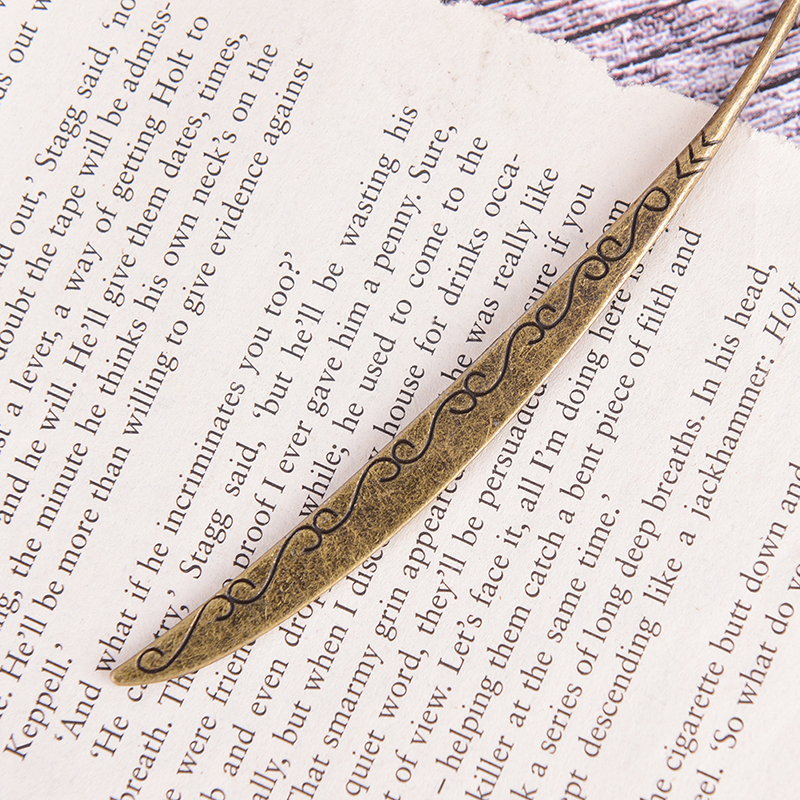 ds out w
d out,' Stagg said, 'no
doubt the tape will be admiss-
st a lever, a way of getting Holt to
and he will. He'll give them dates, times,
ng, the minute he thinks his own neck's on the
e. He'll be more than willing to give evidence against
Keppell.'
'And what if he incriminates you too?'
'He ca ry,' Stagg said, 'but he'll be wasting his
breath. Th proof I ever gave him a penny. Sure,
we were frien while; he used to come to the
b and even dro y house for drinks occa-
ally, but when I disc he was really like
That smarmy grin appeared sure if you
quiet word, they'll be persuaded m
t of view. Let's face it, all I'm doing here is
– helping them catch a bent piece of filth and
killer at the same time.'
k a series of long deep breaths. In his head,
pt descending like a jackhammer: Holt
he cigarette butt down and
eel. 'So what do yo